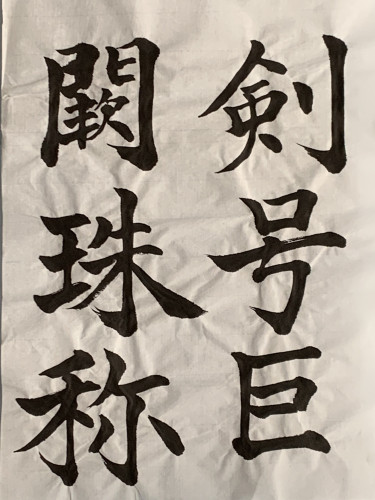 剣号巨
闕珠称